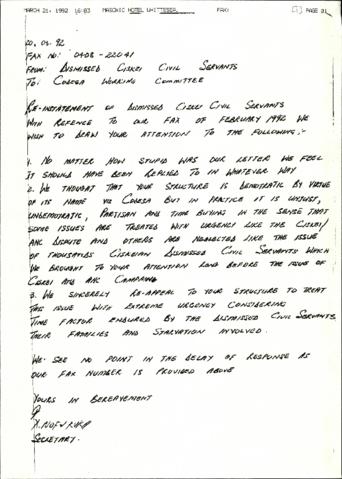 MARCH 21, 1992 16:03 MASONIC HOTEL WHITTLESEA FAX: PAGE 01
20.03.92
FAX NO: 0408-22041
FROM: DISMISSED CISKEI CIVIL SERVANTS
TO: CODESA WORKING COMMITTEE
RE-INSTATEMENT OF DISMISSED CISKEI CIVIL SERVANTS
WITH REFENCE TO OUR FAX OF FEBRUARY 1992 WE
WISH TO DRAW YOUR ATTENTION TO THE FOLLOWING:-
1. NO MATTER HOW STUPID WAS OUR LETTER WE FEEL
IT SHOULD HAVE BEEN REPLIED TO IN WHATEVER WAY
2. WE THOUGHT THAT YOUR STRUCTURE IS DEMOCRATIC BY VIRTUE
OF ITS NAME VIZ CODESA BUT IN PRACTICE IT IS UNJUST,
UNDEMOCRATIC, PARTISAN AND TIME BUYING IN THE SENSE THAT
SOME ISSUES ARE TREATED WITH URGENCY LIKE THE CISKEI/
ANC DISPUTE AND OTHERS ARE NEGLECTED LIKE THE ISSUE
OF THOUSANDS CISKEIAN DISMISSED CIVIL SERVANTS WHICH
WE BROUGHT TO YOUR ATTENTION LONG BEFORE THE ISSUE OF
CISKEI AND ANC CAMPAING
3. WE SINCERELY RE-APPEAL TO YOUR STRUCTURE TO TREAT
THIS ISSUE WITH EXTREME URGENCY CONSIDERING
TIME FACTOR ENDURED BY THE DISMISSED CIVIL SERVANTS
THEIR FAMILIES AND STARVATION INVOLVED.
WE SEE NO POINT IN THE DELAY OF RESPONSE AS
OUR FAX NUMBER IS PROVIDED ABOVE
YOURS IN BEREAVEMENT
SECRETARY.